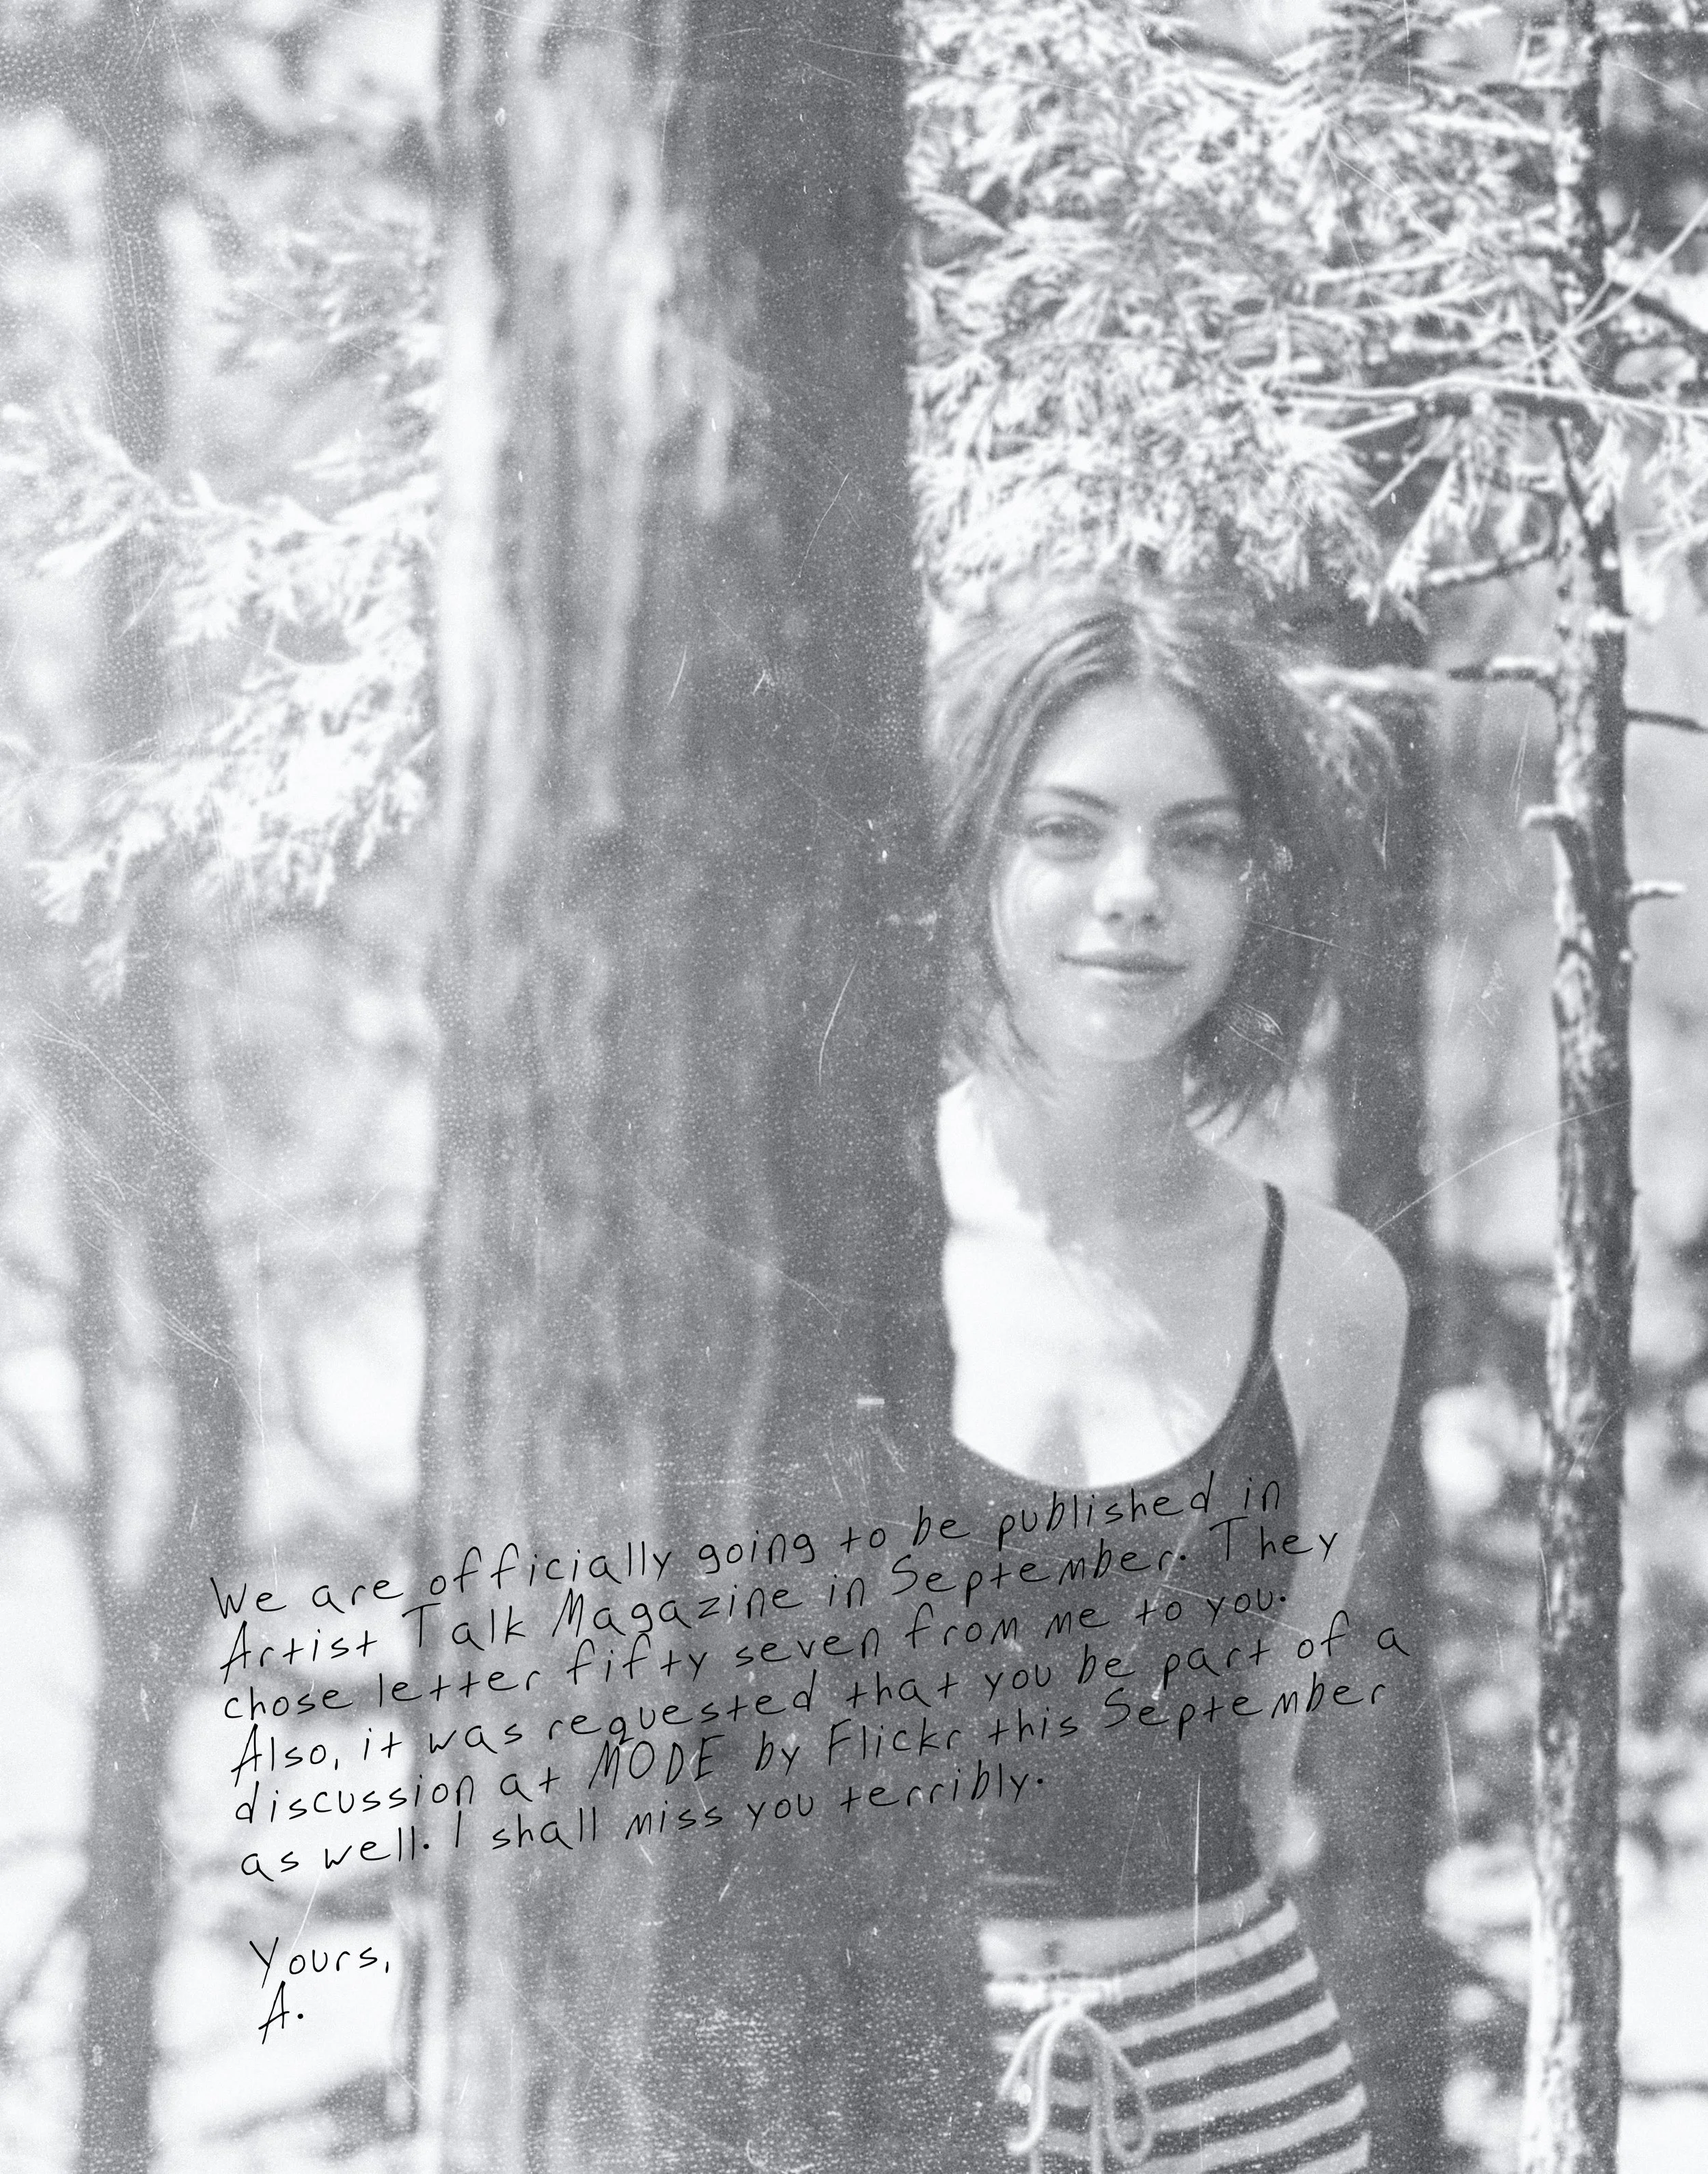 We are officially going to be published in
Artist Talk Magazine in September. They
chose letter fifty seven from me to you.
Also, it was requested that you be part of a
discussion at MODE by Flickr this September
as well. I shall miss you terribly.
Yours,
A.